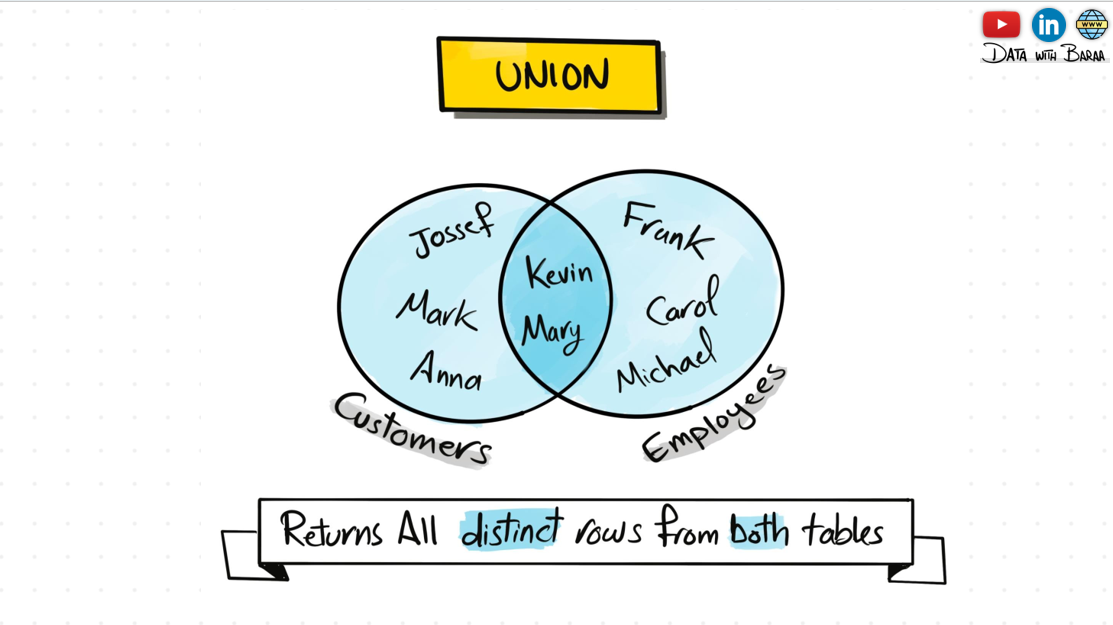 WWW
DATA WITH BARAA
UNION
Jossef
Mark
Anna
Kevin
Mary
Frank
Carol
Michael
Customers
Employees
Returns All distinct rows from both tables